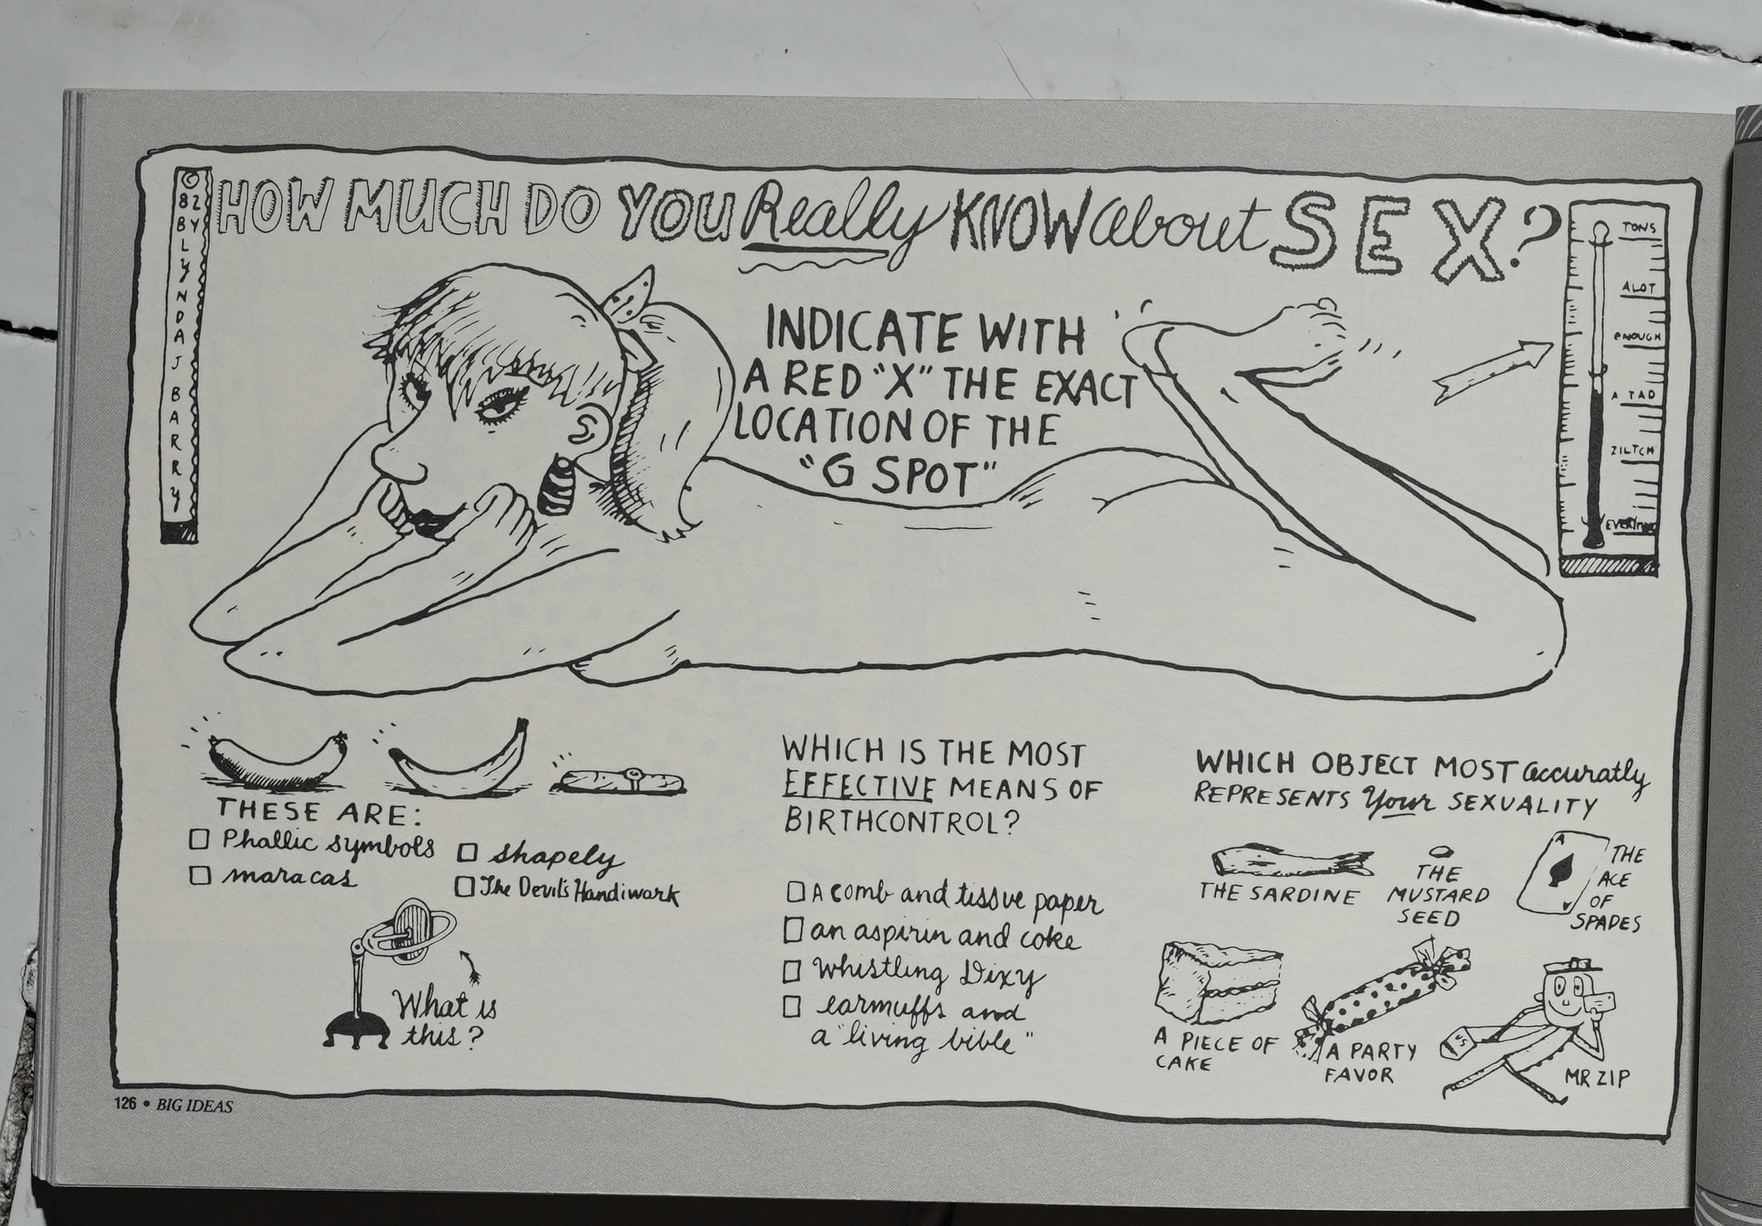 © 82 BY LYNDA J BARRY
HOW MUCH DO YOU Really KNOW about SEX?
INDICATE WITH
A RED "X" THE EXACT
LOCATION OF THE
"G SPOT"
TONS
ALOT
ENOUGH
A TAD
ZILTCH
THESE ARE:
Phallic symbols
maracas
shapely
The Devil's Handiwark
What is
this?
WHICH IS THE MOST
EFFECTIVE MEANS OF
BIRTHCONTROL?
A comb and tissue paper
an aspirin and coke
Whistling Dixy
earmuffs and
a "living bible"
WHICH OBJECT MOST accuratly
REPRESENTS Your SEXUALITY
THE SARDINE
THE
MUSTARD
SEED
A
THE
ACE
OF
SPADES
A PIECE OF
CAKE
A PARTY
FAVOR
MR ZIP
126 • BIG IDEAS